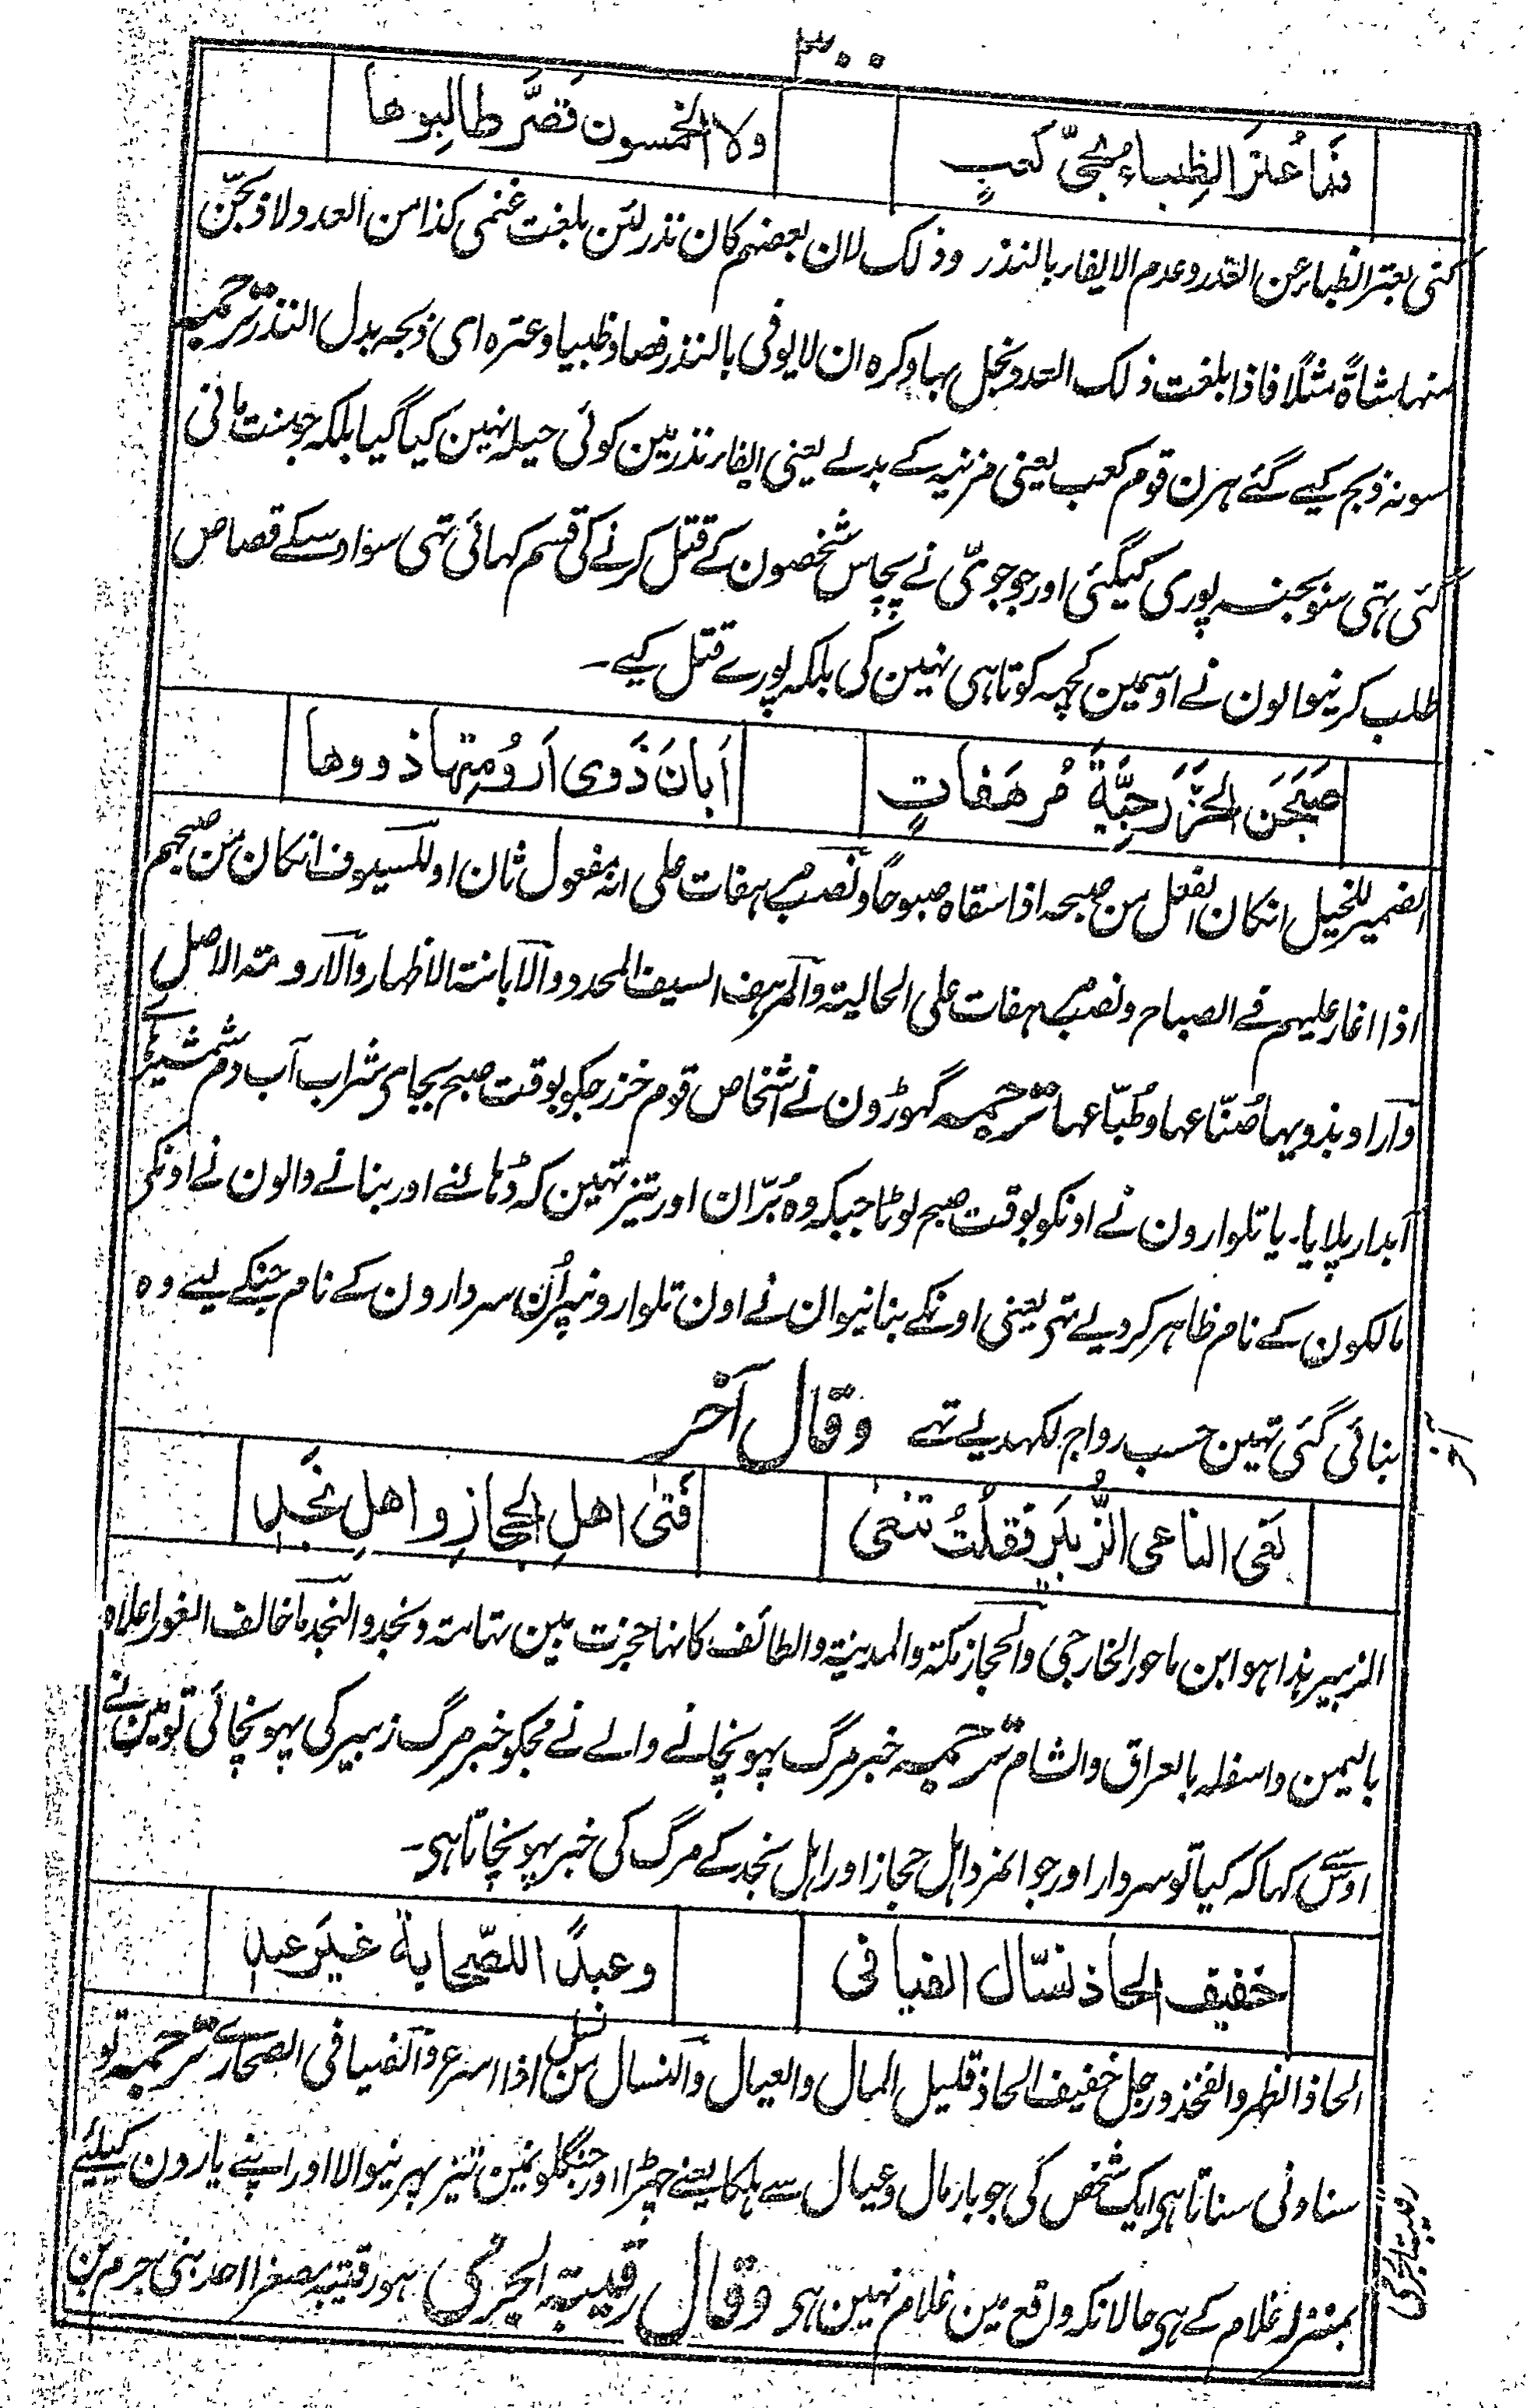 ۳۰۰
فَمَا عُتِرَ الظِباءُ بِحَیِّ کَعبٍ ولا الخمسون قصَّر طالِبوها
کنی بعتر الظباء عن الغدر وعدم الایفاء بالنذر وذلک لان بعضهم کان نذر لئن بلغت غنمی کذا من العدد لاذبحنّ
منها شاةً مثلًا فاذا بلغت ذلک العدد بخل بها وکره ان لا یوفی بالنذر فصاد ظبیا وعتره ای ذبحه بدل النذر ترجمہ
سو نہ ذبح کیے گئے ہرن قوم کعب یعنی مزنیہ کے بدلے یعنی ایفاء نذر مین کوئی حیلہ نہین کیا گیا بلکہ جو منت مانی
گئی تہی سو بجنسہ پوری کیگئی اور جو جویّ نے پچاس شخصون کے قتل کرنے کی قسم کہائی تہی سو اوسکے قصاص
طلب کرنیوالون نے اوسمین کچہہ کوتاہی نہین کی بلکہ پورے قتل کیے۔
صَبَحنَ الخَزرَجِیَّةَ مُرهَفاتٍ اَبانَ ذَوِی اَرُومتِها ذووها
الضمیر للخیل انکان الفعل من صبحه اذا سقاه صبوحاً ونصب مرهفات علی انه مفعول ثان او للسیوف انکان من صبحهم
اذا اغار علیهم فے الصباح ونصب مرهفات علی الحالیة والمرهف السیف المحدد والابانة الاظهار والارومة الاصل
واراد بذویها صُنّاعها وطُبّاعها ترجمہ گہوڑون نے اشخاص قوم خزرجکو بوقت صبح بجای شراب آب دم شمشیر کے
آبدار پلایا۔ یا تلوارون نے اونکو بوقت صبح لوٹا جبکہ وہ بُرّان اور تیز تہین کہ ڈہالنے اور بنانے والون نے اونکی
مالکون کے نام ظاہر کردیے تہی یعنی اونکے بنانیوالن نے اون تلوارونپر اُن سردارون کے نام جنکے لیے وہ
بنائی گئی تہین حسب رواج لکہدیے تہے وقال آخر
نَعَی الناعی الزُّبَیرَ فَقلتُ تنعٰی فَتٰی اهلِ الحجازِ و اهلِ نَجدِ
الزبیر هذا هو ابن ماحوز الخارجی والحجاز مکة والمدینة والطائف کانها حجزت بین تهامة ونجد والنجد ما خالف الغور اعلاه
بالیمن واسفله بالعراق والشام ترجمہ خبر مرگ پہونچانے والے نے مجکو خبر مرگ زبیر کی پہونچائی تو مین نے
اوسے کہا کہ کیا تو سردار اور جوانمرد اہل حجاز اور اہل نجد کے مرگ کی خبر پہونچاتا ہی۔
خفیف الحاذ نسّال الفیافی وعبدً اللصّحابة غیرَ عبدِ
الحاذ الظهر والفخذ ورجل خفیف الحاذ قلیل المال والعیال والنسال من نسل اذا اسرع والفیافی الصحارے ترجمہ تو
سناونی سناتا ہی ایک شخص کی جو بار مال وعیال سے ہلکا یعنے چھڑا اور جنگلونمین تیز پہرنیوالا اور اپنے یارون کیلئے
بمنزلہ غلام کے ہی حالانکہ واقع مین غلام نہین ہی وقال رقیبة الجرمی هو رقیبة مصغرا احد بنی جرم بن
رقیبة الجرمی